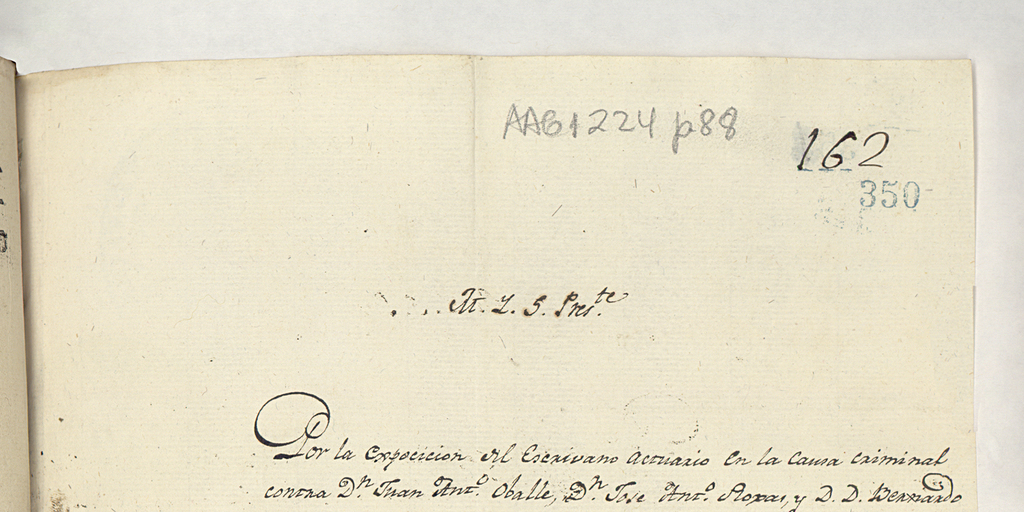 AAG1224 p88
162
350
M. Y. S. Pres.te
Por la Expocicion del Escrivano actuario en la causa criminal
contra Dn. Juan Anto. Oballe, Dn. Jose Anto. Roxas, y D. D. Bernardo